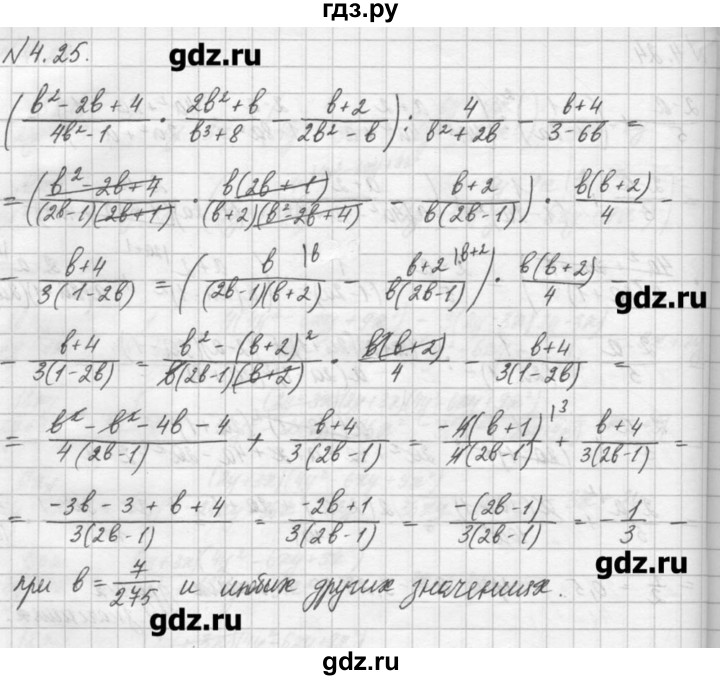 гдз.ру
№4.25.
gdz.ru
((b²-2b+4)/(4b²-1) · (2b²+b)/(b³+8) - (b+2)/(2b²-b)) : 4/(b²+2b) - (b+4)/(3-6b) =
= ((b²-2b+4)/((2b-1)(2b+1)) · b(2b+1)/((b+2)(b²-2b+4)) - (b+2)/(b(2b-1))) · b(b+2)/4 -
- (b+4)/(3(1-2b)) = (b|b/((2b-1)(b+2)) - b+2|b+2/(b(2b-1))) · b(b+2)/4 -
gdz.ru
- (b+4)/(3(1-2b)) = (b²-(b+2)²)/(b(2b-1)(b+2)) · b(b+2)/4 - (b+4)/(3(1-2b)) =
= (b²-b²-4b-4)/(4(2b-1)) + (b+4)/(3(2b-1)) = -4(b+1)|3/(4(2b-1)) + (b+4)/(3(2b-1)) =
= (-3b-3+b+4)/(3(2b-1)) = (-2b+1)/(3(2b-1)) = -(2b-1)/(3(2b-1)) = -1/3 -
gdz.ru
при b = 7/275 и любых других значениях.
gdz.ru
gdz.ru